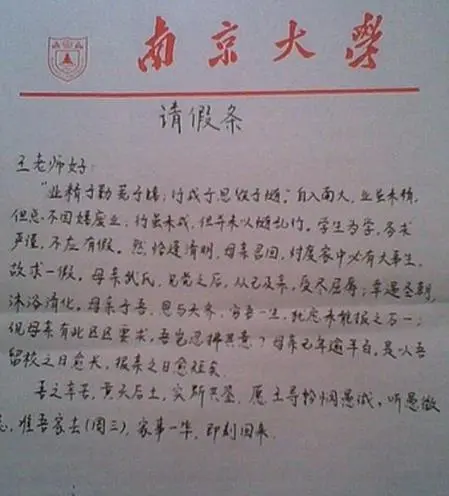 南京大学
请假条
王老师好:
"业精于勤荒于嬉;行成于思毁于随。"自入南大,业虽未精,
但忌不因嬉废业;行虽未成,但并未以随乱行。学生为学,务求
严谨,不应有假。然恰逢清明,母亲召回,忖度家中必有大事生,
故求一假。母亲
之后,从己及亲,受尽屈辱;幸遇圣朝,
沐浴清化。母亲于吾,恩与天齐,穷吾一生,犹定未能报之万一;
现母亲有此区区要求,吾岂忍拂其意?母亲已年逾半百,是以吾
留校之日愈长,报亲之日愈短矣。
吾之辛苦,皇天后土,实所共鉴,愿王导矜悯愚诚,听愚微
志,准吾离去(周三),家事一毕,即刻回来。